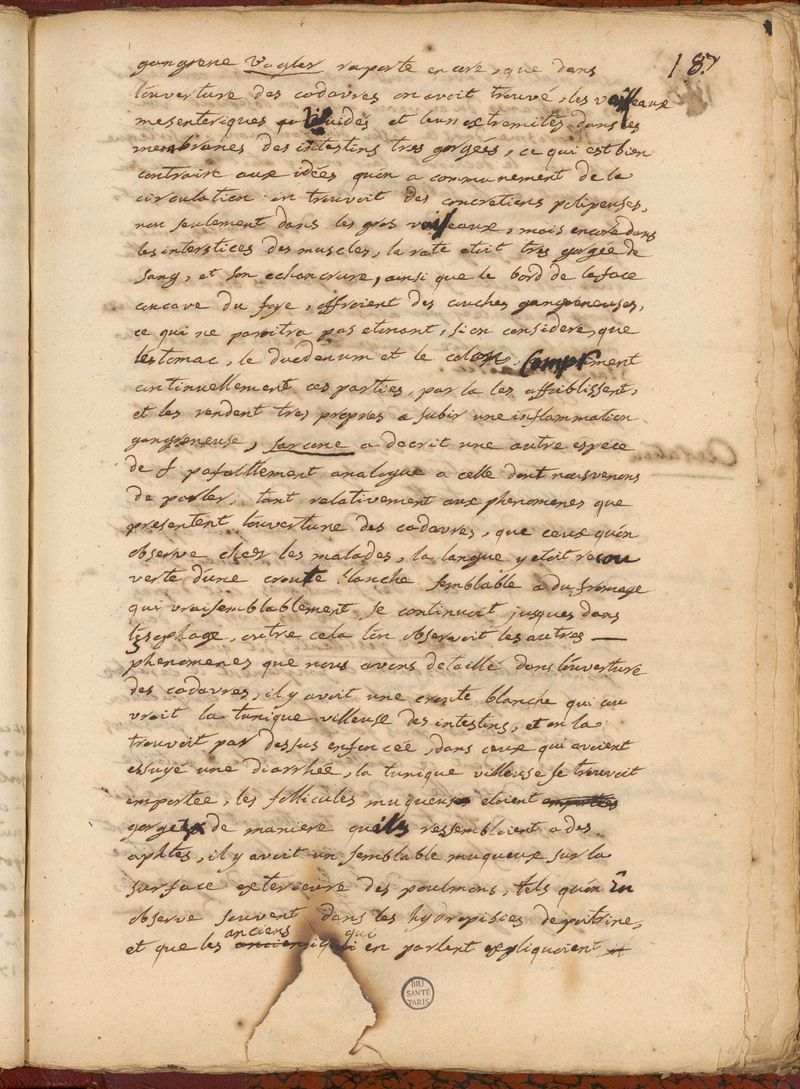 187
gangrene Vogler raporte encore, que dans
l'ouverture des cadavres on avoit trouvé, les vaisseaux
mesenteriques et leurs extremités dans les
membranes des intestins tres gorgées, ce qui est bien
contraire aux idées qu'on a communement de la
circulation on trouvoit des concretions polipeuses,
non seulement dans les gros vaisseaux, mais encore dans
les interstices des muscles, la rate etoit tres gorgée de
sang, et son echancrure, ainsi que le bord de la face
concave du foye, offroient des couches gangreneuses,
ce qui ne paroitra pas etonant, si on considere, que
lestomac, le duodenum et le colon compriment
continuellement ces parties, par la les affoiblissent,
et les rendent tres propres a subir une inflammation
gangreneuse, Sarcone a decrit une autre espece
de f parfaittement analogue a celle dont nous venons
de parler, tant relativement aux phenomenes que
presentent l'ouverture des cadavres, que ceux qu'on
observe chez les malades, la langue y etoit recou
verte d'une croute blanche semblable a du fromage
qui vraisemblablement se continuoit jusques dans
lesophage, outre cela l'on observoit les autres —
phenomenes que nous avons detaillé dans l'ouverture
des cadavres, il y avoit une croute blanche qui cou
vroit la tunique villeuse des intestins, et on la
trouvoit par dessus enfoncée, dans ceux qui avoient
essuyé une diarrhée, la tunique villeuse se trouvoit
emportée, les follicules muqueuses etoient emportées
gorgées de maniere qu'ils ressembloient a des
aphtes, il y avoit un semblable muqueux sur la
surface exterieure des poulmons, tels qu'on en
observe souvent dans les hydropisies de poitrine,
et que les anciens qui en parlent expliquoient
BIU
SANTÉ
PARIS